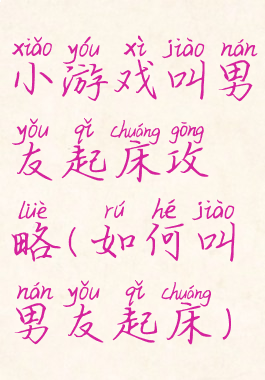 xiǎo yóu xì jiào nán
小游戏叫男
yǒu qǐ chuáng gōng
友起床攻
lüè rú hé jiào
略(如何叫
nán yǒu qǐ chuáng
男友起床)